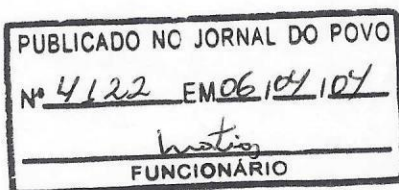 PUBLICADO NO JORNAL DO POVO
Nº 4122 EM 06/04/04
FUNCIONÁRIO